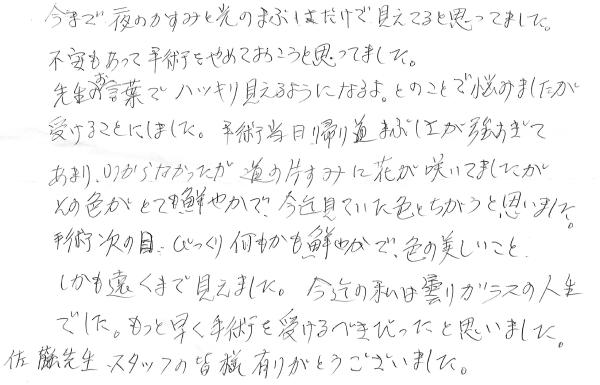 今まで夜のかすみと光のまぶしさだけで見えてると思ってました。
不安もあって手術をやめておこうと思ってました。
先生のお言葉でハッキリ見えるようになるよ。とのことで悩みましたが
受けることにしました。手術当日帰り道まぶしさが強すぎて
あまりわからなかったが道の片すみに花が咲いてましたが
その色がとても鮮やかで、今迄見ていた色とちがうと思いました。
手術次の日、びっくり何もかも鮮やかで、色の美しいこと、
しかも遠くまで見えました。今迄の私は曇りガラスの人生
でした。もっと早く手術を受けるべきだったと思いました。
佐藤先生、スタッフの皆様有りがとうございました。